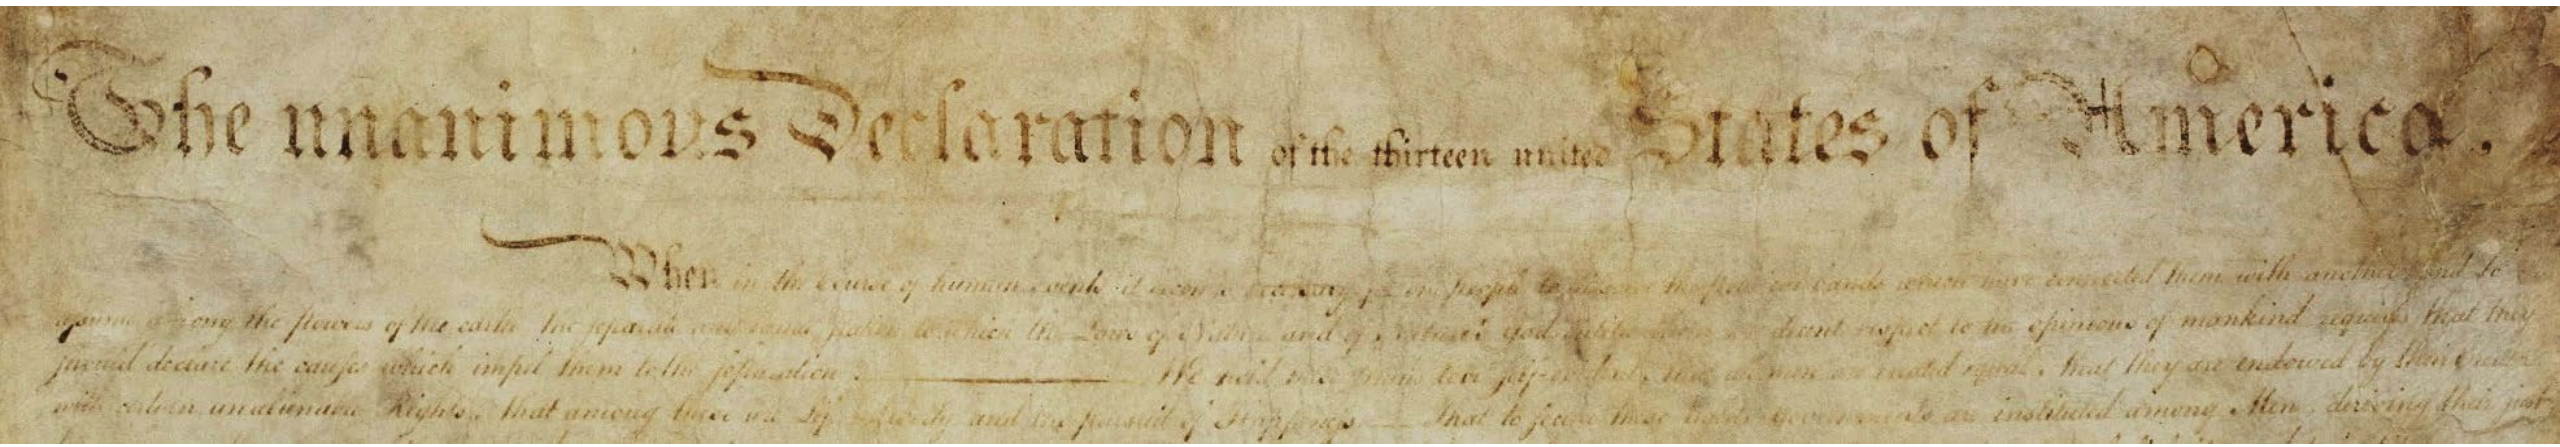 The unanimous Declaration of the thirteen united States of America.
When in the Course of human events it becomes necessary for one people to dissolve the political bands which have connected them with another and to
assume among the powers of the earth, the separate and equal station to which the Laws of Nature and of Nature's God entitle them, a decent respect to the opinions of mankind requires that they
should declare the causes which impel them to the separation. We hold these truths to be self-evident, that all men are created equal, that they are endowed by their Creator
with certain unalienable Rights, that among these are Life, Liberty and the pursuit of Happiness. — That to secure these rights, Governments are instituted among Men, deriving their just